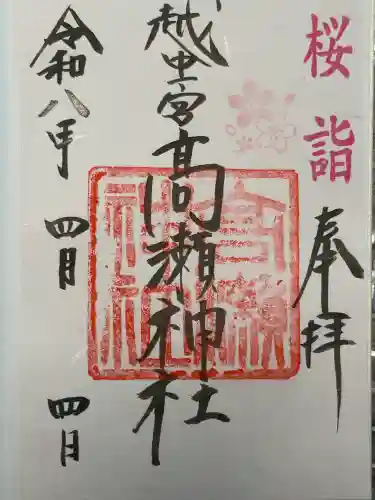 桜詣
奉拝
越中一宮髙瀬神社
令和八年
四月
四日